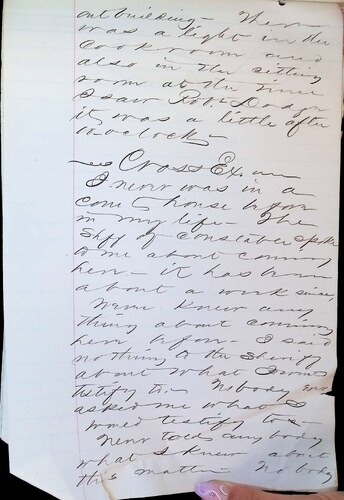 out building - There
was a light in the
Cook room and
also in the sitting
room at the time
I saw Robt
it was a little after
o'clock -
Cross Ex.
I never was in a
house before
in my life - The
Shff or Constable spoke
to me about coming
here - it has been
about a week since,
Never knew any
thing about coming
here before - I said
nothing to the Sheriff
about what I would
testify to - Nobody ever
asked me what I
would testify to -
Never told any body
what I knew about
this matter - No body